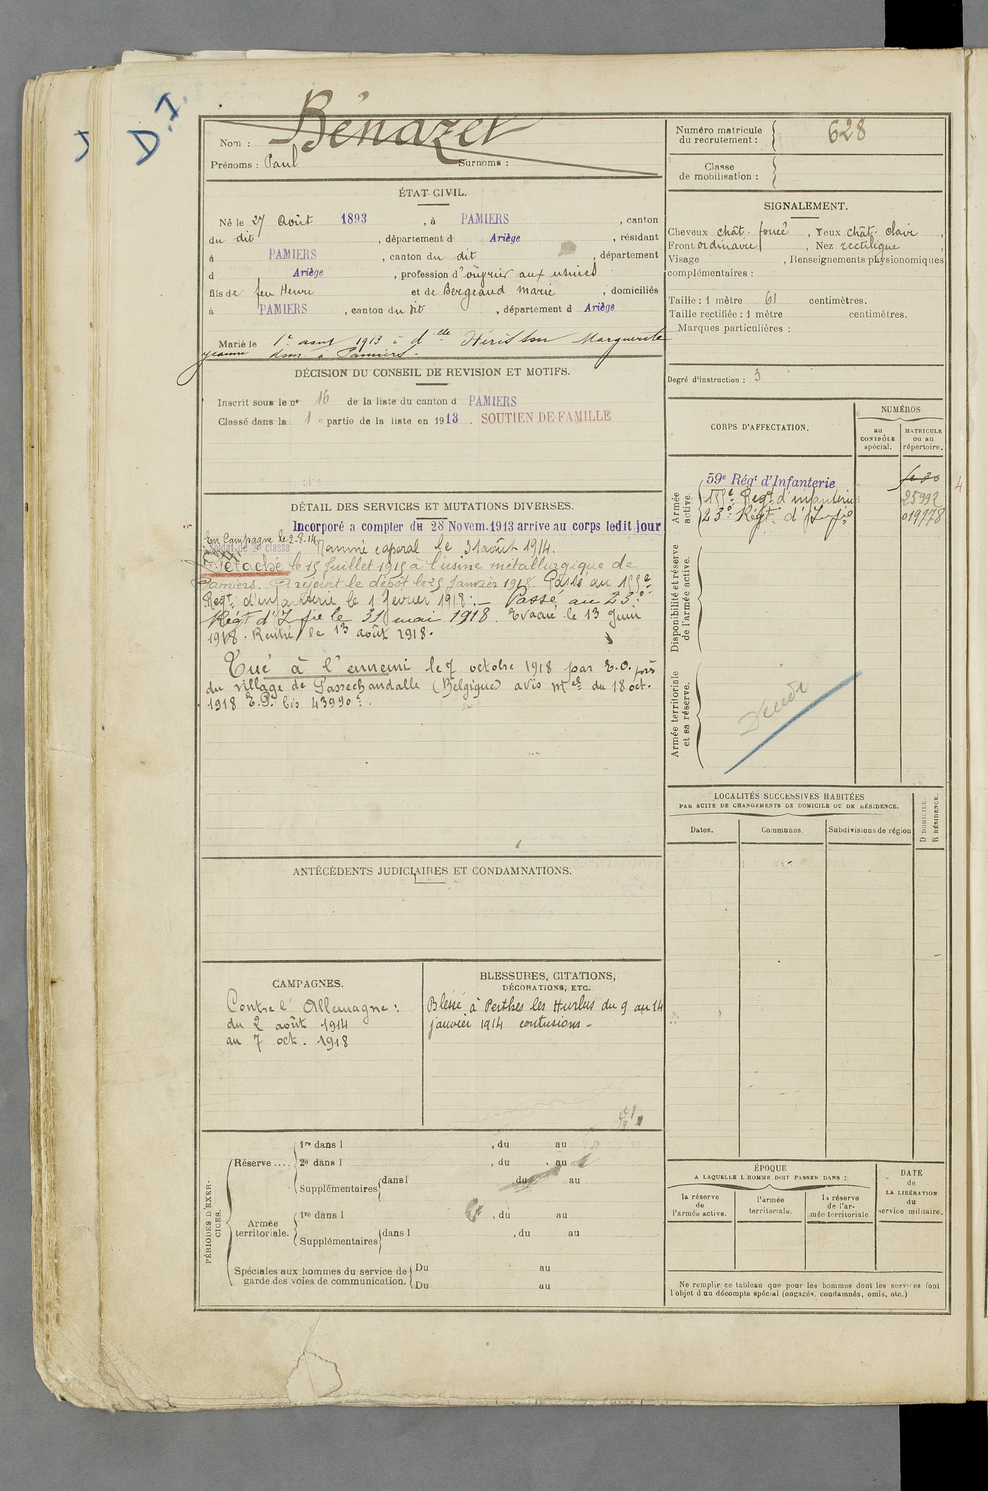 D.I.
Nom : Bénazet
Prénoms : Paul Surnoms :
Numéro matricule du recrutement : 628
Classe de mobilisation :
ÉTAT CIVIL.
Né le 27 Août 1893, à PAMIERS, canton
du dit, département d Ariège, résidant
à PAMIERS, canton du dit, département
d Ariège, profession d'ouvrier aux usines
fils de feu Henri et de Bergeaud Marie, domiciliés
à PAMIERS, canton du dit, département d Ariège
Marié le 1er 1913 à dlle Marguerite
Jeanne dom. à Pamiers.
SIGNALEMENT.
Cheveux chât. foncé, Yeux chât. clair,
Front ordinaire, Nez rectiligne,
Visage , Renseignements physionomiques
complémentaires :
Taille : 1 mètre 61 centimètres.
Taille rectifiée : 1 mètre centimètres.
Marques particulières :
Degré d'instruction : 3
DÉCISION DU CONSEIL DE REVISION ET MOTIFS.
Inscrit sous le no 16 de la liste du canton d PAMIERS
Classé dans la 1e partie de la liste en 1913. SOUTIEN DE FAMILLE
CORPS D'AFFECTATION.
NUMÉROS
au CONTRÔLE spécial.
MATRICULE ou au répertoire.
Armée active.
59e Régt d'Infanterie
Régt d'infanterie 25992
23e Régt d'Infie 019778
Disponibilité et réserve de l'armée active.
Armée territoriale et sa réserve.
DÉTAIL DES SERVICES ET MUTATIONS DIVERSES.
Incorporé a compter du 28 Novem. 1913 arrive au corps ledit jour
En Campagne le 2.8.14
Soldat de 2e classe Nommé caporal le 31 août 1914.
Détaché le 15 juillet 1915 à l'usine métallurgique de
Pamiers. A rejoint le dépôt le 25 Janvier 1918. Passé au
Régt d'infanterie le 1 février 1918. – Passé au 23e
Régt d'Infie le 31 mai 1918. Evacué le 13 juin
1918. Rentré le 13 août 1918.
Tué à l'ennemi le 7 octobre 1918 par E.O. près
du village de Passechendalle (Belgique) avis mel du 18 oct.
1918 E.P. bis 43990.
LOCALITÉS SUCCESSIVES HABITÉES
PAR SUITE DE CHANGEMENTS DE DOMICILE OU DE RÉSIDENCE.
Dates. Communes. Subdivisions de région D DOMICILE. R RÉSIDENCE.
ANTÉCÉDENTS JUDICIAIRES ET CONDAMNATIONS.
CAMPAGNES.
Contre l'Allemagne :
du 2 août 1914
au 7 oct. 1918
BLESSURES, CITATIONS,
DÉCORATIONS, ETC.
Blessé à Perthes les Hurlus du 9 au 14
janvier 1914 contusions -
PÉRIODES D'EXERCICES.
Réserve....
1re dans l , du au
2e dans l , du au
Supplémentaires dans l , du au
Armée territoriale.
1re dans l , du au
Supplémentaires dans l , du au
Spéciales aux hommes du service de garde des voies de communication.
Du au
Du au
ÉPOQUE
A LAQUELLE L'HOMME DOIT PASSER DANS :
la réserve de l'armée active.
l'armée territoriale.
la réserve de l'armée territoriale
DATE de LA LIBÉRATION du service militaire.
Ne remplir ce tableau que pour les hommes dont les services font
l'objet d'un décompte spécial (engagés, condamnés, omis, etc.)